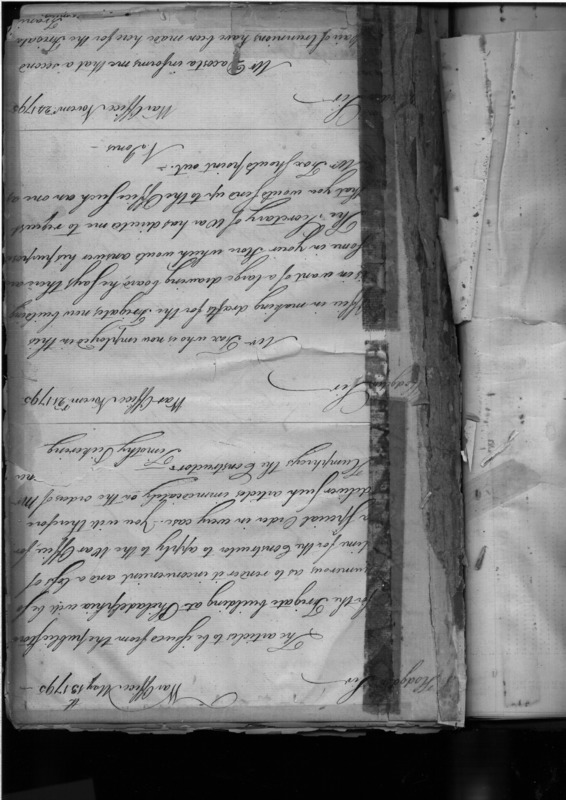 War Office May 18th 1795
Sir
Hodgdon
The articles to be issued from the public store
for the Frigate building at Philadelphia will be so
numerous as to render it inconvenient and a loss of
time for the Constructor to apply to the War Office for
a special Order in every case. You will therefore
deliver such articles immediately on the orders of Mr
Humphreys the Constructor.
Timothy Pickering
War Office Novemr 21 1795
Sir
Hodgdon
Mr Fox who is now employed in this
Office in making drafts for the Frigates now building
is in want of a large drawing board, he says there is
some in your Store which would answer his purpose
The Secretary of War has directed me to request
that you would send up to the Office such an one as
Mr Fox should point out.
War Office Novemr 24 1795
Sir
Mr Dacosta informs me that a second
of trunnions have been made here for the Frigate